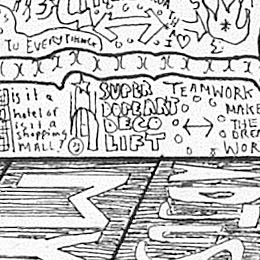 TO EVERYTHING
Is it a
hotel or
is it a
shopping
MALL?
SUPER
DOPE ART
DECO
LIFT
TEAMWORK
MAKE
THE
DREA
WOR